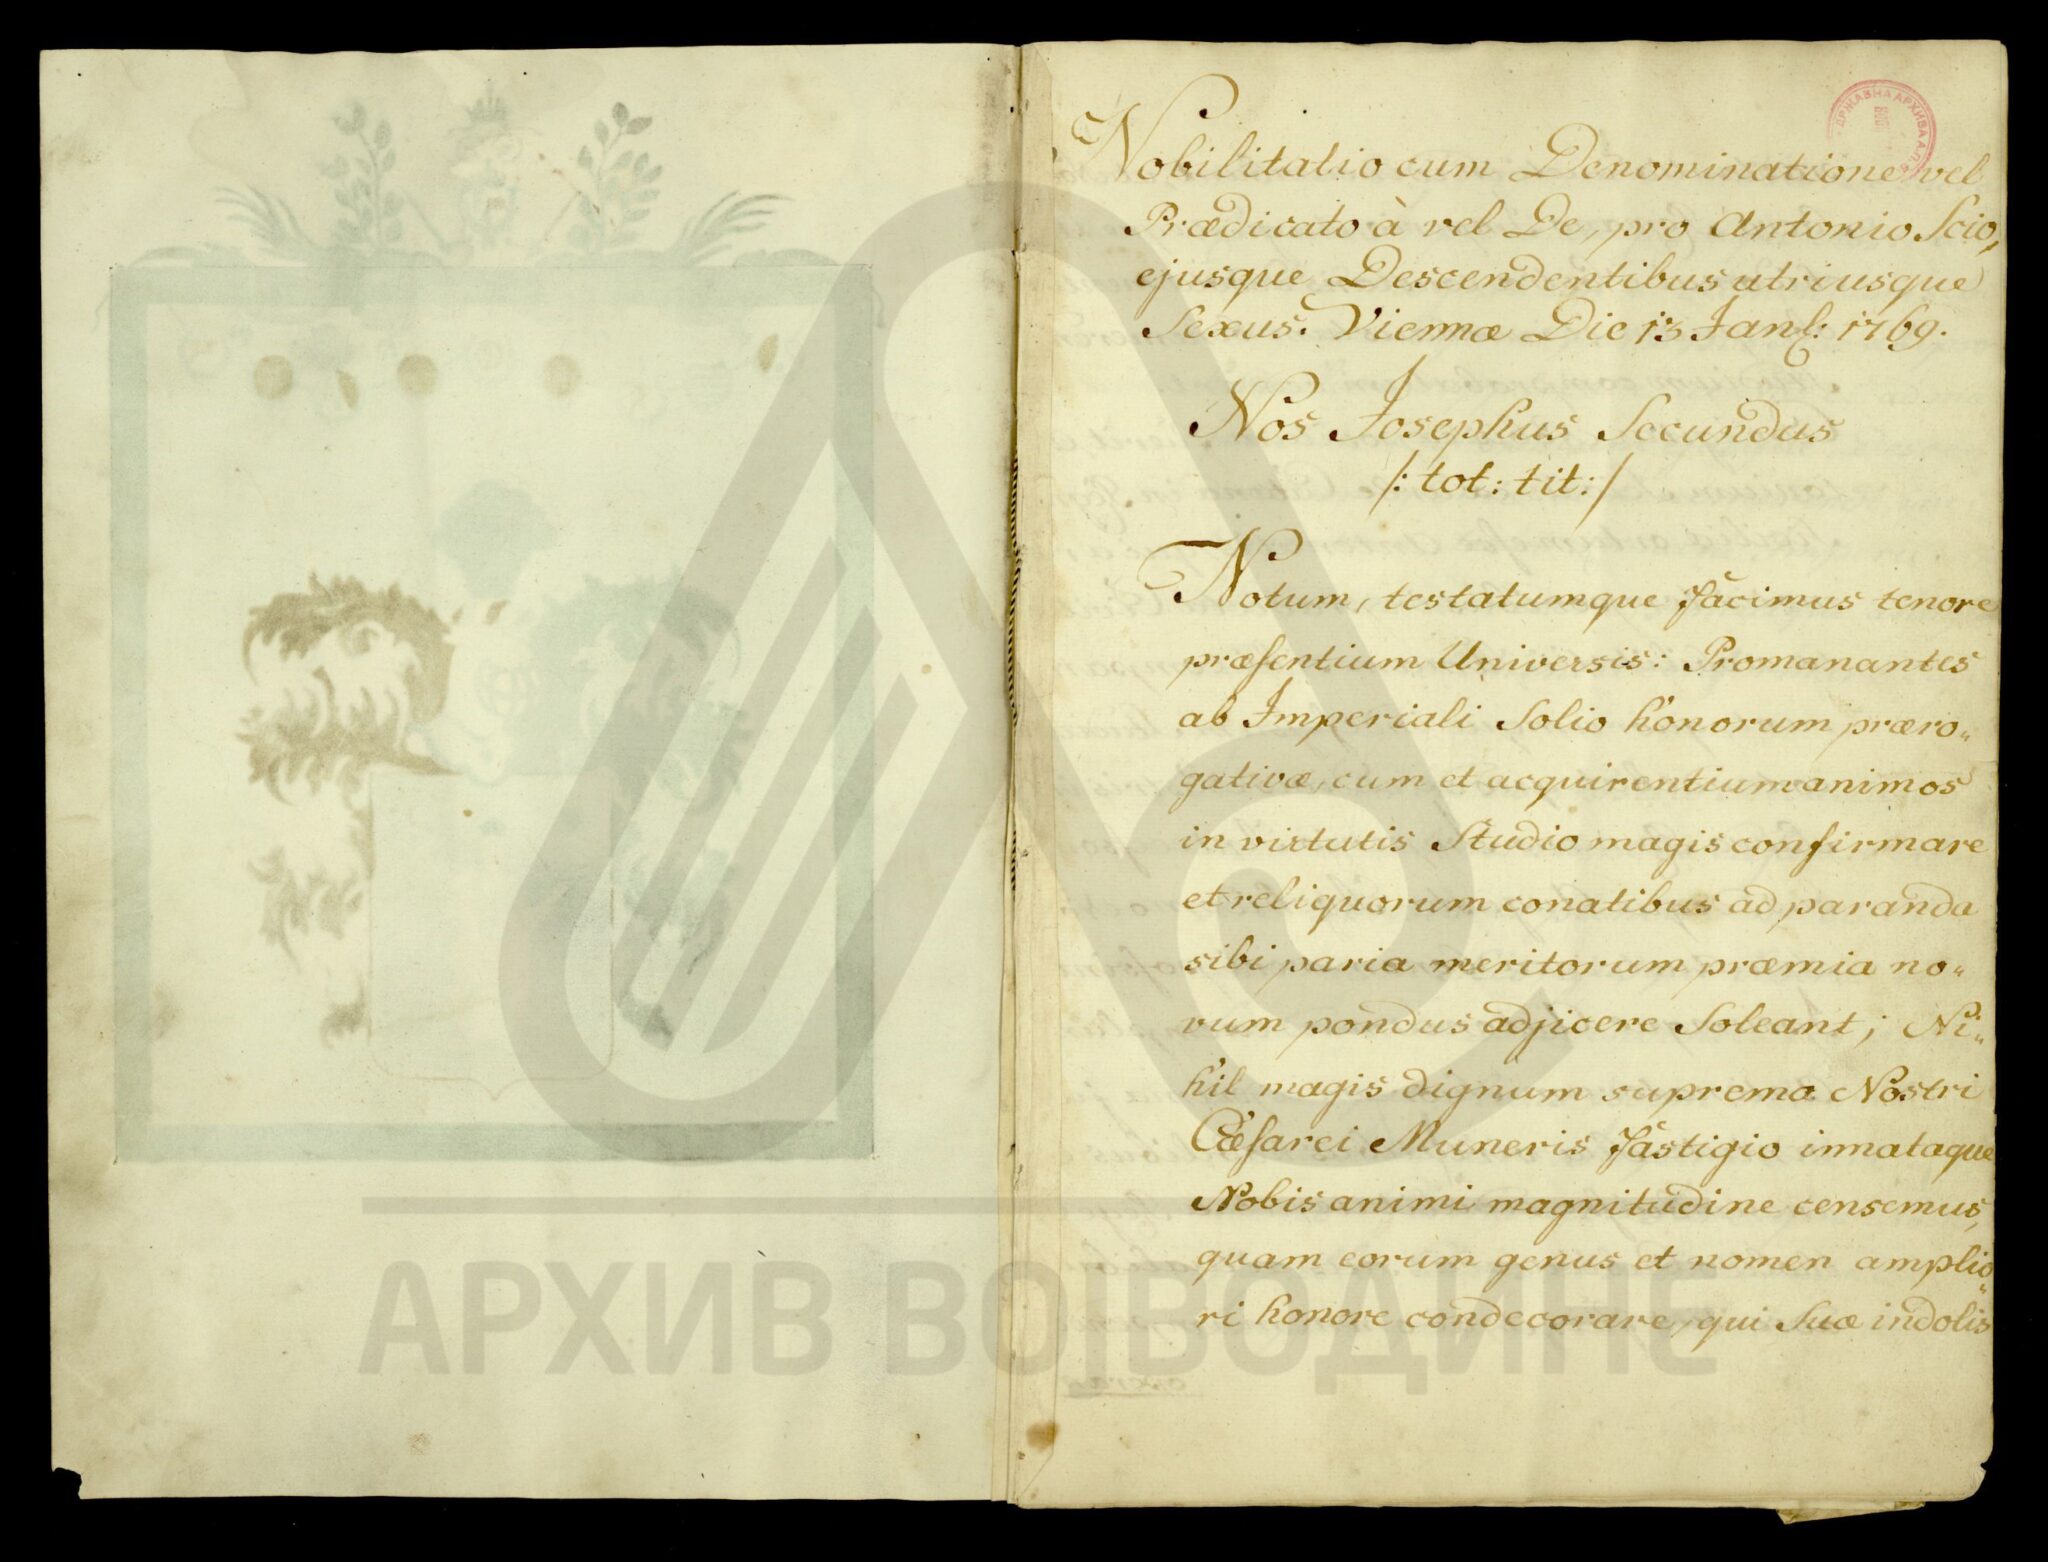 Nobilitatio cum Denominatione vel
Prædicato à vel De, pro Antonio Scio,
ejusque Descendentibus utriusque
Sexus. Viennæ Die 13 Jan: 1769.
Nos Josephus Secundus
/: tot: tit: /
Notum, testatumque facimus tenore
præsentium Universis: Promanantes
ab Imperiali Solio honorum præro„
gativæ, cum et acquirentium animos
in virtutis Studio magis confirmare
et reliquorum conatibus ad paranda
sibi paria meritorum præmia no„
vum pondus adjicere Soleant; Ni„
hil magis dignum suprema Nostri
Cæsarei Muneris fastigio innataque
Nobis animi magnitudine censemus,
quam eorum genus et nomen amplio„
ri honore condecorare, qui Suæ indolis
ДРЖАВНА АРХИВА
АРХИВ ВОЈВОДИНЕ